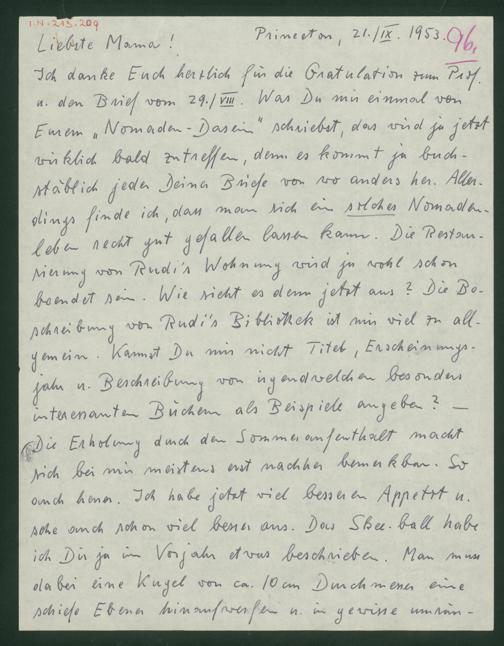 I.N. 213.209
Princeton, 21./IX. 1953.
96.
Liebste Mama!
Ich danke Euch herzlich für die Gratulation zum Prof.
u. den Brief vom 29./VIII. Was Du mir einmal von
Eurem „Nomaden-Dasein" schriebst, das wird ja jetzt
wirklich bald zutreffen, denn es kommt ja buch-
stäblich jeder Deiner Briefe von wo anders her. Aller-
dings finde ich, dass man sich ein solches Nomaden-
leben recht gut gefallen lassen kann. Die Restau-
rierung von Rudi's Wohnung wird ja wohl schon
beendet sein. Wie sieht es denn jetzt aus? Die Be-
schreibung von Rudi's Bibliothek ist mir viel zu all-
gemein. Kannst Du mir nicht Titel, Erscheinungs-
jahr u. Beschreibung von irgendwelchen besonders
interessanten Büchern als Beispiele angeben? —
Die Erholung durch den Sommeraufenthalt macht
sich bei mir meistens erst nachher bemerkbar. So
auch heuer. Ich habe jetzt viel besseren Appetit u.
sehe auch schon viel besser aus. Das Skee-ball habe
ich Dir ja im Vorjahr etwas beschrieben. Man muss
dabei eine Kugel von ca. 10 cm Durchmesser eine
schiefe Ebene hinaufwerfen u. in gewisse umrän-